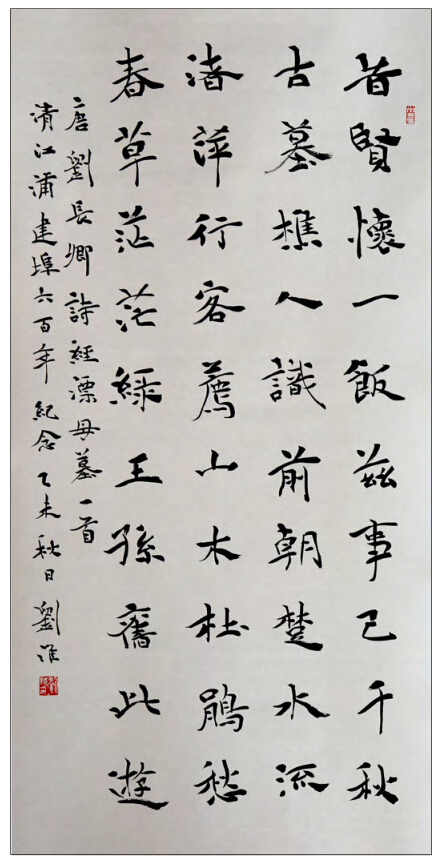 昔賢懷一飯茲事已千秋
古墓樵人識前朝楚水流
渚萍行客薦山木杜鵑愁
春草茫茫綠王孫舊此遊
唐劉長卿詩經漂母墓一首
清江浦建埠六百年紀念乙未秋日劉